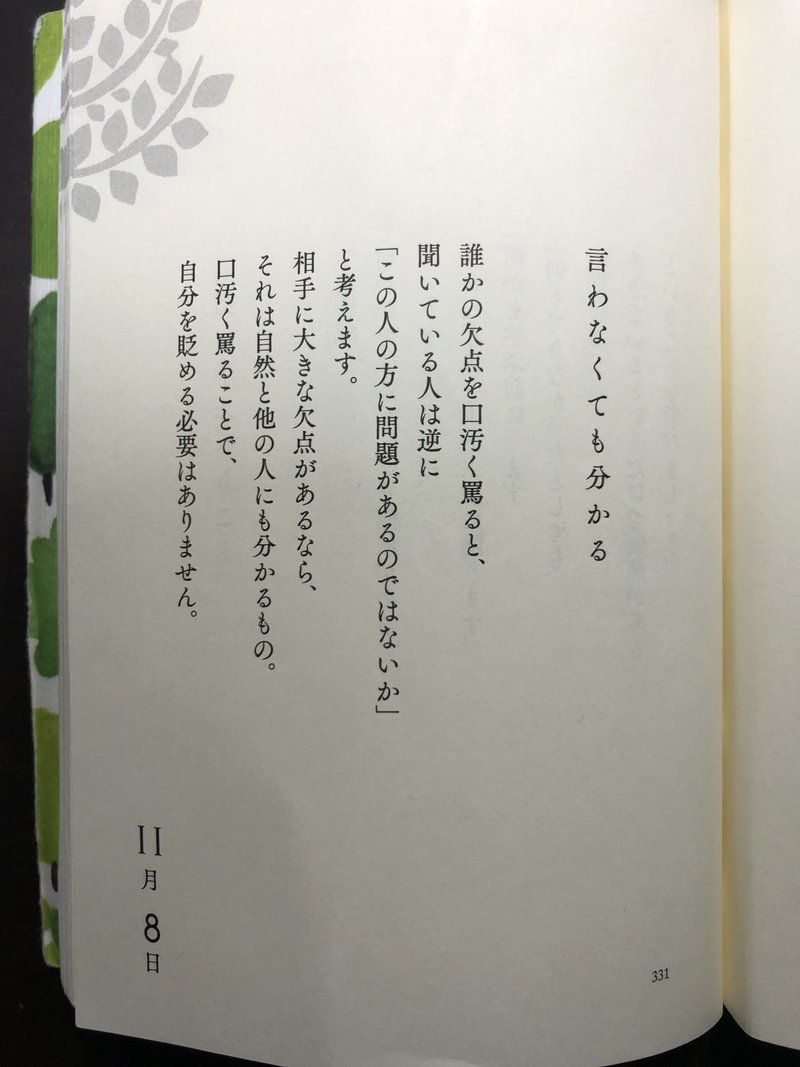 言わなくても分かる
誰かの欠点を口汚く罵ると、
聞いている人は逆に
「この人の方に問題があるのではないか」
と考えます。
相手に大きな欠点があるなら、
それは自然と他の人にも分かるもの。
口汚く罵ることで、
自分を貶める必要はありません。
11月8日
331